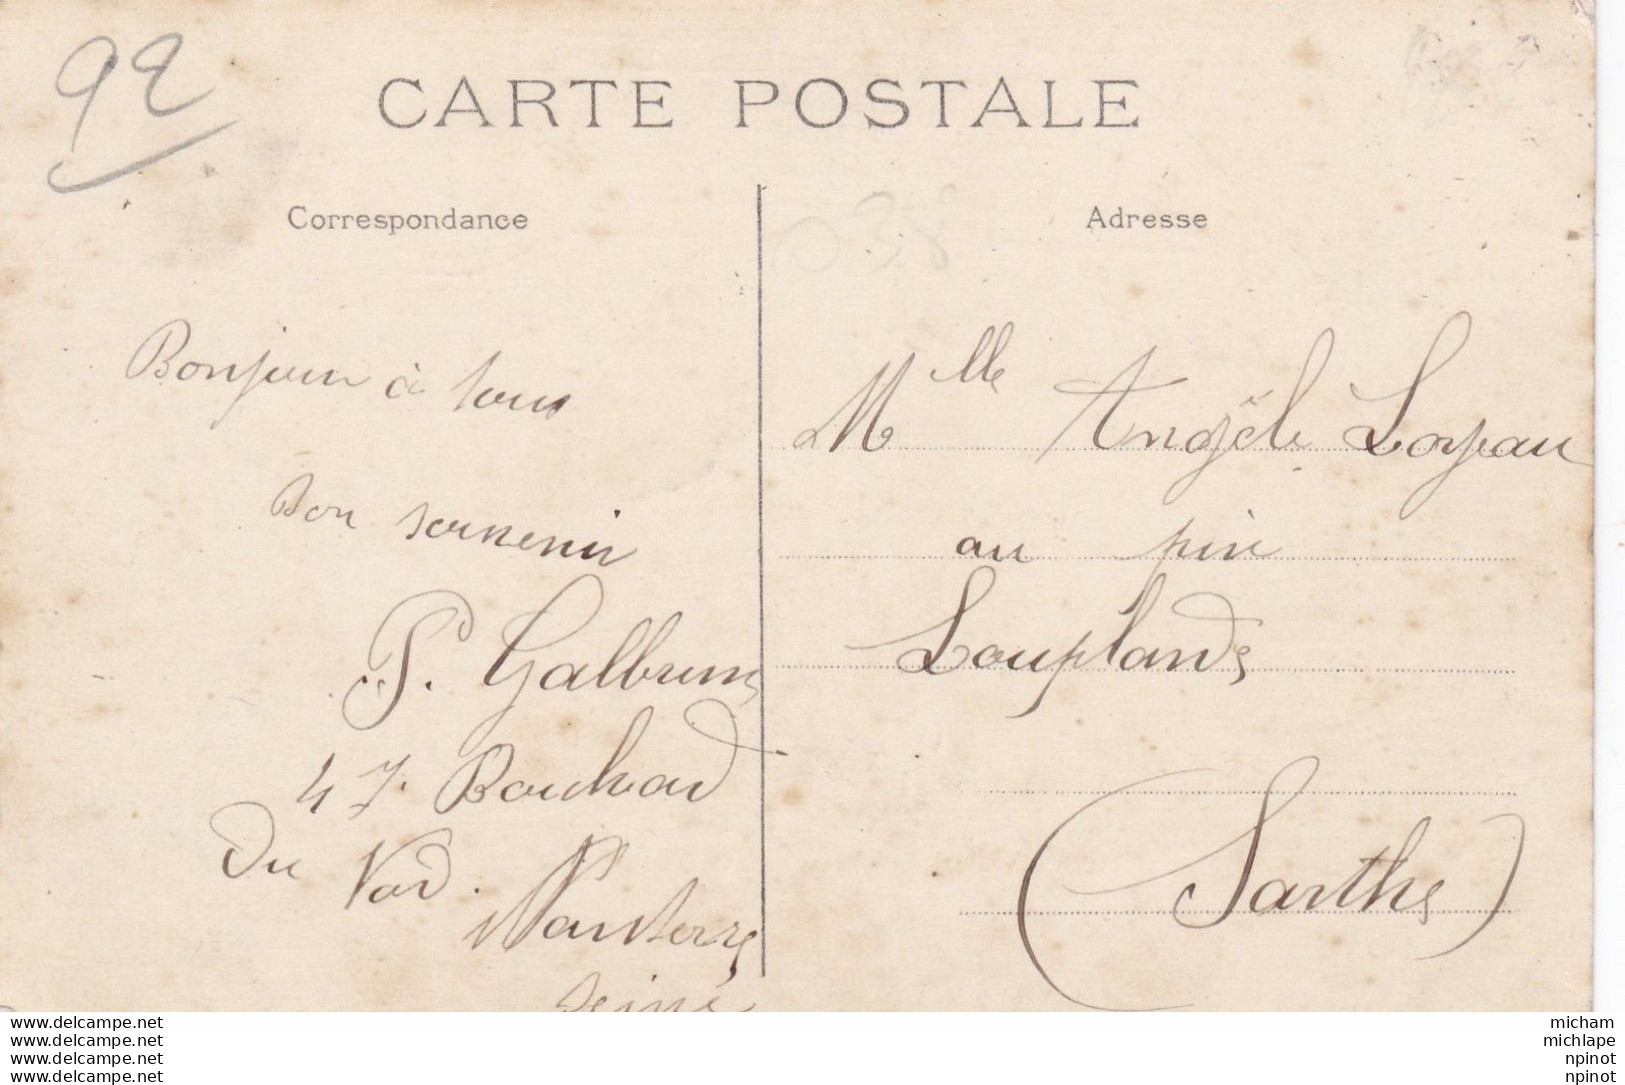 92
CARTE POSTALE
Correspondance
Bonjour à tous
Bon souvenir
P. Galbrun
47 Boulevard
Du Nord.
Nanterre
Seine
Adresse
Mlle Angèle Loyeau
au pin
Louplande
(Sarthe)
www.delcampe.net
www.delcampe.net
www.delcampe.net
www.delcampe.net
micham
michlape
npinot
npinot